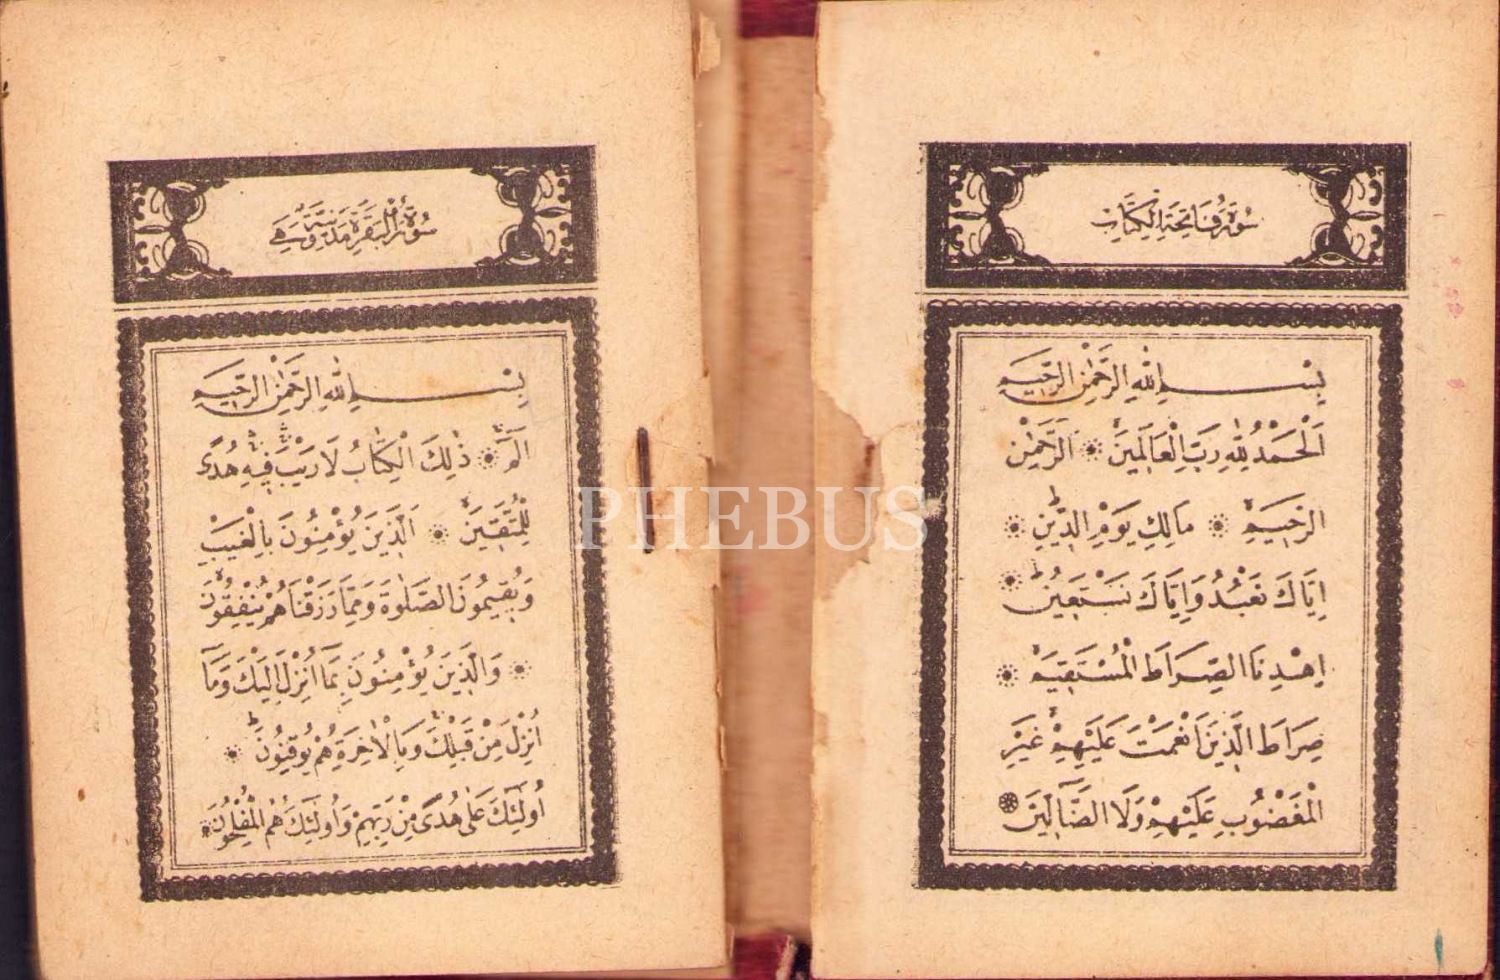 سُورَةُ فَاتِحَةِ الْكِتَابِ
بِسْمِ اللهِ الرَّحْمٰنِ الرَّحِيمِ
اَلْحَمْدُ لِلّٰهِ رَبِّ الْعَالَمِينَ ۞ اَلرَّحْمٰنِ
الرَّحِيمِ ۞ مَالِكِ يَوْمِ الدِّينِ ۞
اِيَّاكَ نَعْبُدُ وَاِيَّاكَ نَسْتَعِينُ ۞
اِهْدِنَا الصِّرَاطَ الْمُسْتَقِيمَ ۞
صِرَاطَ الَّذِينَ اَنْعَمْتَ عَلَيْهِمْ غَيْرِ
الْمَغْضُوبِ عَلَيْهِمْ وَلَا الضَّٓالِّينَ ۞
سُورَةُ الْبَقَرَةِ مَدَنِيَّةٌ وَهِيَ
بِسْمِ اللهِ الرَّحْمٰنِ الرَّحِيمِ
الٓمٓ ۞ ذٰلِكَ الْكِتَابُ لَا رَيْبَ فِيهِ هُدًى
لِلْمُتَّقِينَ ۞ اَلَّذِينَ يُؤْمِنُونَ بِالْغَيْبِ
وَيُقِيمُونَ الصَّلٰوةَ وَمِمَّا رَزَقْنَاهُمْ يُنْفِقُونَ
۞ وَالَّذِينَ يُؤْمِنُونَ بِمَٓا اُنْزِلَ اِلَيْكَ وَمَٓا
اُنْزِلَ مِنْ قَبْلِكَ وَبِالْاٰخِرَةِ هُمْ يُوقِنُونَ ۞
اُولٰٓئِكَ عَلٰى هُدًى مِنْ رَبِّهِمْ وَاُولٰٓئِكَ هُمُ الْمُفْلِحُونَ ۞
PHEBUS